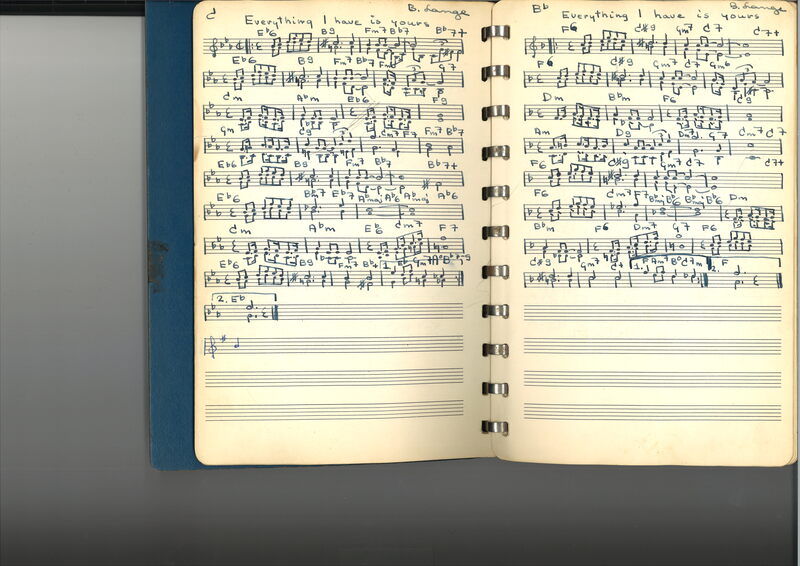 C B. Lange
Everything I have is yours
Eb6 B9 Fm7 Bb7 Bb7+
Eb6 B9 Fm7 Bb7 Fm6 G7
Cm Abm Eb6 F9
Gm C9 Cm7 F7 Fm7 Bb7
Eb6 B9 Fm7 Bb7 Bb7+
Eb6 Bbm7 Eb7 Abmaj Ab6 Abmaj Ab6
Cm Abm Eb6 Cm7 F7
Eb6 B9 Fm7 Bb+ 1.
2. Eb
Bb B. Lange
Everything I have is yours
F6 C#9 Gm7 C7 C7+
F6 C#9 Gm7 C7 Gm6
Dm Bbm F6 C9
Am D9 Dm7 G7 Cm7 C7
F6 C#9 Gm7 C7 C7+
F6 Cm7 F7 Bbmaj Bb6 Bbmaj Bb6 Dm
Bbm F6 Dm7 G7 F6
C#9 Gm7 C+ 1. F Am7 2. F